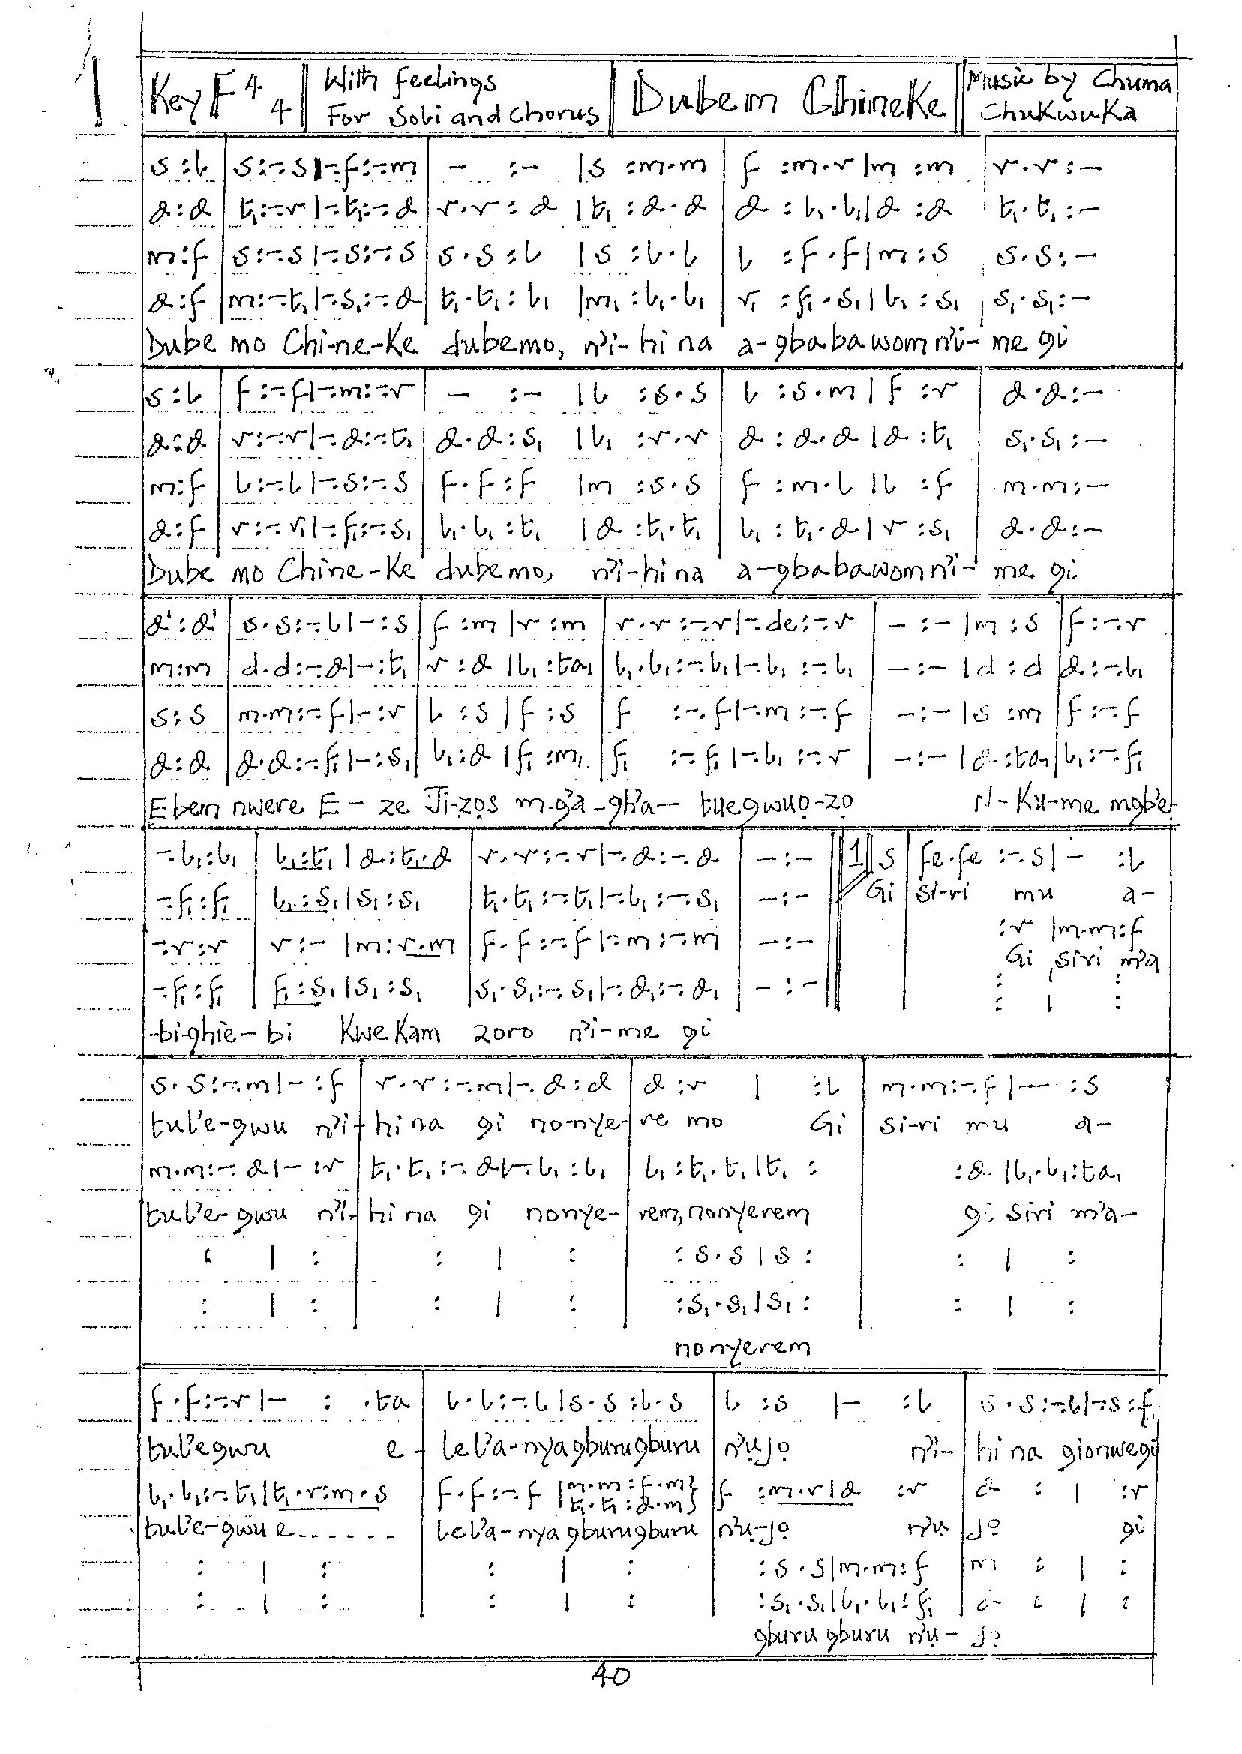 Key F 4/4 With feelings For Soli and Chorus Dubem Chineke Music by Chuma Chukwuka
s:l | s:-.s|-.f:-.m | - :- |s :m.m | f :m.r|m :m | r.r :-
d:d | t₁:-.r|-.t₁:-.d | r.r : d |t₁ :d.d | d :l₁.l₁|d :d | t₁.t₁ :-
m:f | s:-.s|-.s:-.s | s.s :l |s :l.l | l :f.f|m :s | s.s :-
d:f | m:-.t₁|-.s₁:-.d | t₁.t₁ : l₁ |m₁ :l₁.l₁ | r₁ :f₁.s₁|l₁ :s₁ | s₁.s₁ :-
Dube mo Chi-ne-ke dubemo, n'i-hi na a-gbababawom n'i-me gi
s:l | f:-.f|-.m:-.r | - :- |l :s.s | l :s.m|f :r | d.d :-
d:d | r:-.r|-.d:-.t₁ | d.d :s₁ |l₁ :r.r | d :d.d|d :t₁ | s₁.s₁ :-
m:f | l:-.l|-.s:-.s | f.f :f |m :s.s | f :m.l|l :f | m.m :-
d:f | r:-.r₁|-.f₁:-.s₁ | l₁.l₁ :t₁ |d :t₁.t₁ | l₁ :t₁.d|r :s₁ | d.d :-
Dube mo Chine-ke dubemo, n'i-hi na a-gbababawom n'i- me gi
d':d' | s.s:-.l|-:s | f :m|r :m | r.r:-.r|-.de:-.r | -:-|m :s | f:-.r
m:m | d.d:-.d|-:t₁ | r :d|l₁:ta₁ | l₁.l₁:-.l₁|-.l₁:-.l₁ | -:-|d :d | d:-.l₁
s:s | m.m:-.f|-:r | l :s|f :s | f :-.f|-.m:-.f | -:-|s :m | f:-.f
d:d | d.d:-.f₁|-:s₁ | l₁:d|f₁:m₁ | f₁ :-.f₁|-.l₁:-.r | -:-|d:ta₁ | l₁:-.f₁
Eben nwere E- ze Ji-zos m-ga-gh'a- tuegwuo-zo N-ku-me mgbe
-.l₁:l₁ | l₁:t₁|d:t₁.d | r.r:-.r|-.d:-.d | -:- || 1 s | fe.fe :-.s|- :l
Gi si-ri mu a-
-.f₁:f₁ | l₁:s₁|s₁:s₁ | t₁.t₁:-.t₁|-.l₁:-.s₁ | -:-
:r |m.m:f
-.r:r | r:-|m:r.m | f.f:-.f|-.m:-.m | -:-
Gi siri m'a
: :
-.f₁:f₁ | f₁:s₁|s₁:s₁ | s₁.s₁:-.s₁|-.d₁:-.d₁ | -:-
: | :
-bi-ghie-bi Kwekam zoro n'i-me gi
s.s:-.m|- :f | r.r:-.m|-.d:d | d :r | :l | m.m:-.f|- :s
tul'e-gwu n'i- hi na gi no-nye-re mo Gi si-ri mu a-
m.m:-.d|- :r | t₁.t₁:-.d|-.l₁:l₁ | l₁:t₁.t₁|t₁ : | :d |l₁.l₁:ta₁
tul'e-gwu n'i- hi na gi nonye- rem, nonyerem gi siri m'a-
: | : | : | : | :s.s|s : | : | :
: | : | : | : | :s₁.s₁|s₁ : | : | :
nonyerem
f.f:-.r|- : .ta | l.l:-.l|s.s :l.s | l :s |- :l | s.s:-.l|-.s:f
tul'egwu e- lel'a-nyagburugburu n'ujo n'i- hi na gionwegi
l₁.l₁:-.t₁|t₁.r:m.s | f.f:-.f |m.m:f.m} t₁.t₁:d.m} | f :m.r|d :r | d : | :r
tul'e-gwu e...... lel'a-nya gburugburu n'u-jo n'u- jo gi
: | : | : | : | :s.s|m.m:f | m : | :
: | : | : | : | :s₁.s₁|l₁.l₁:f₁ | d : | :
gburugburu n'u- jo
40